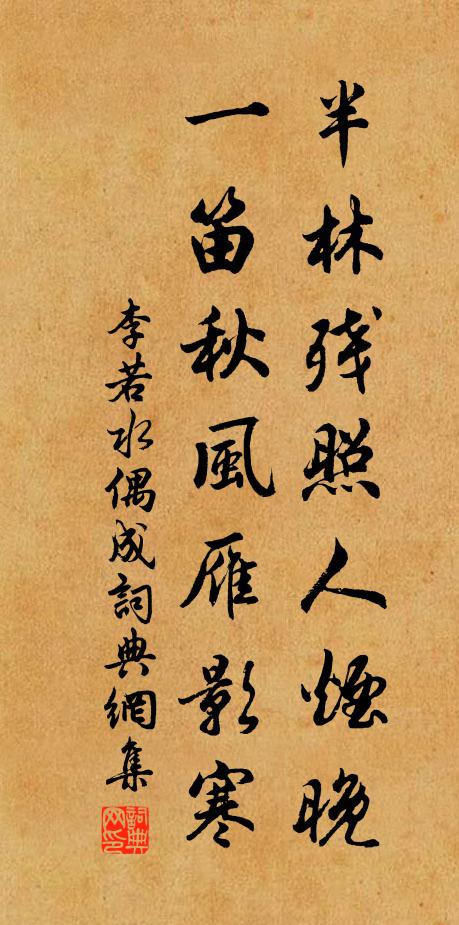 半林残照人煙晚
一笛秋風雁影寒
李若水偶成詞典網集
詞典網印